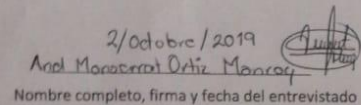 2/Octobre/2019
Anel Monserrat Ortiz Monroy
Nombre completo, firma y fecha del entrevistado